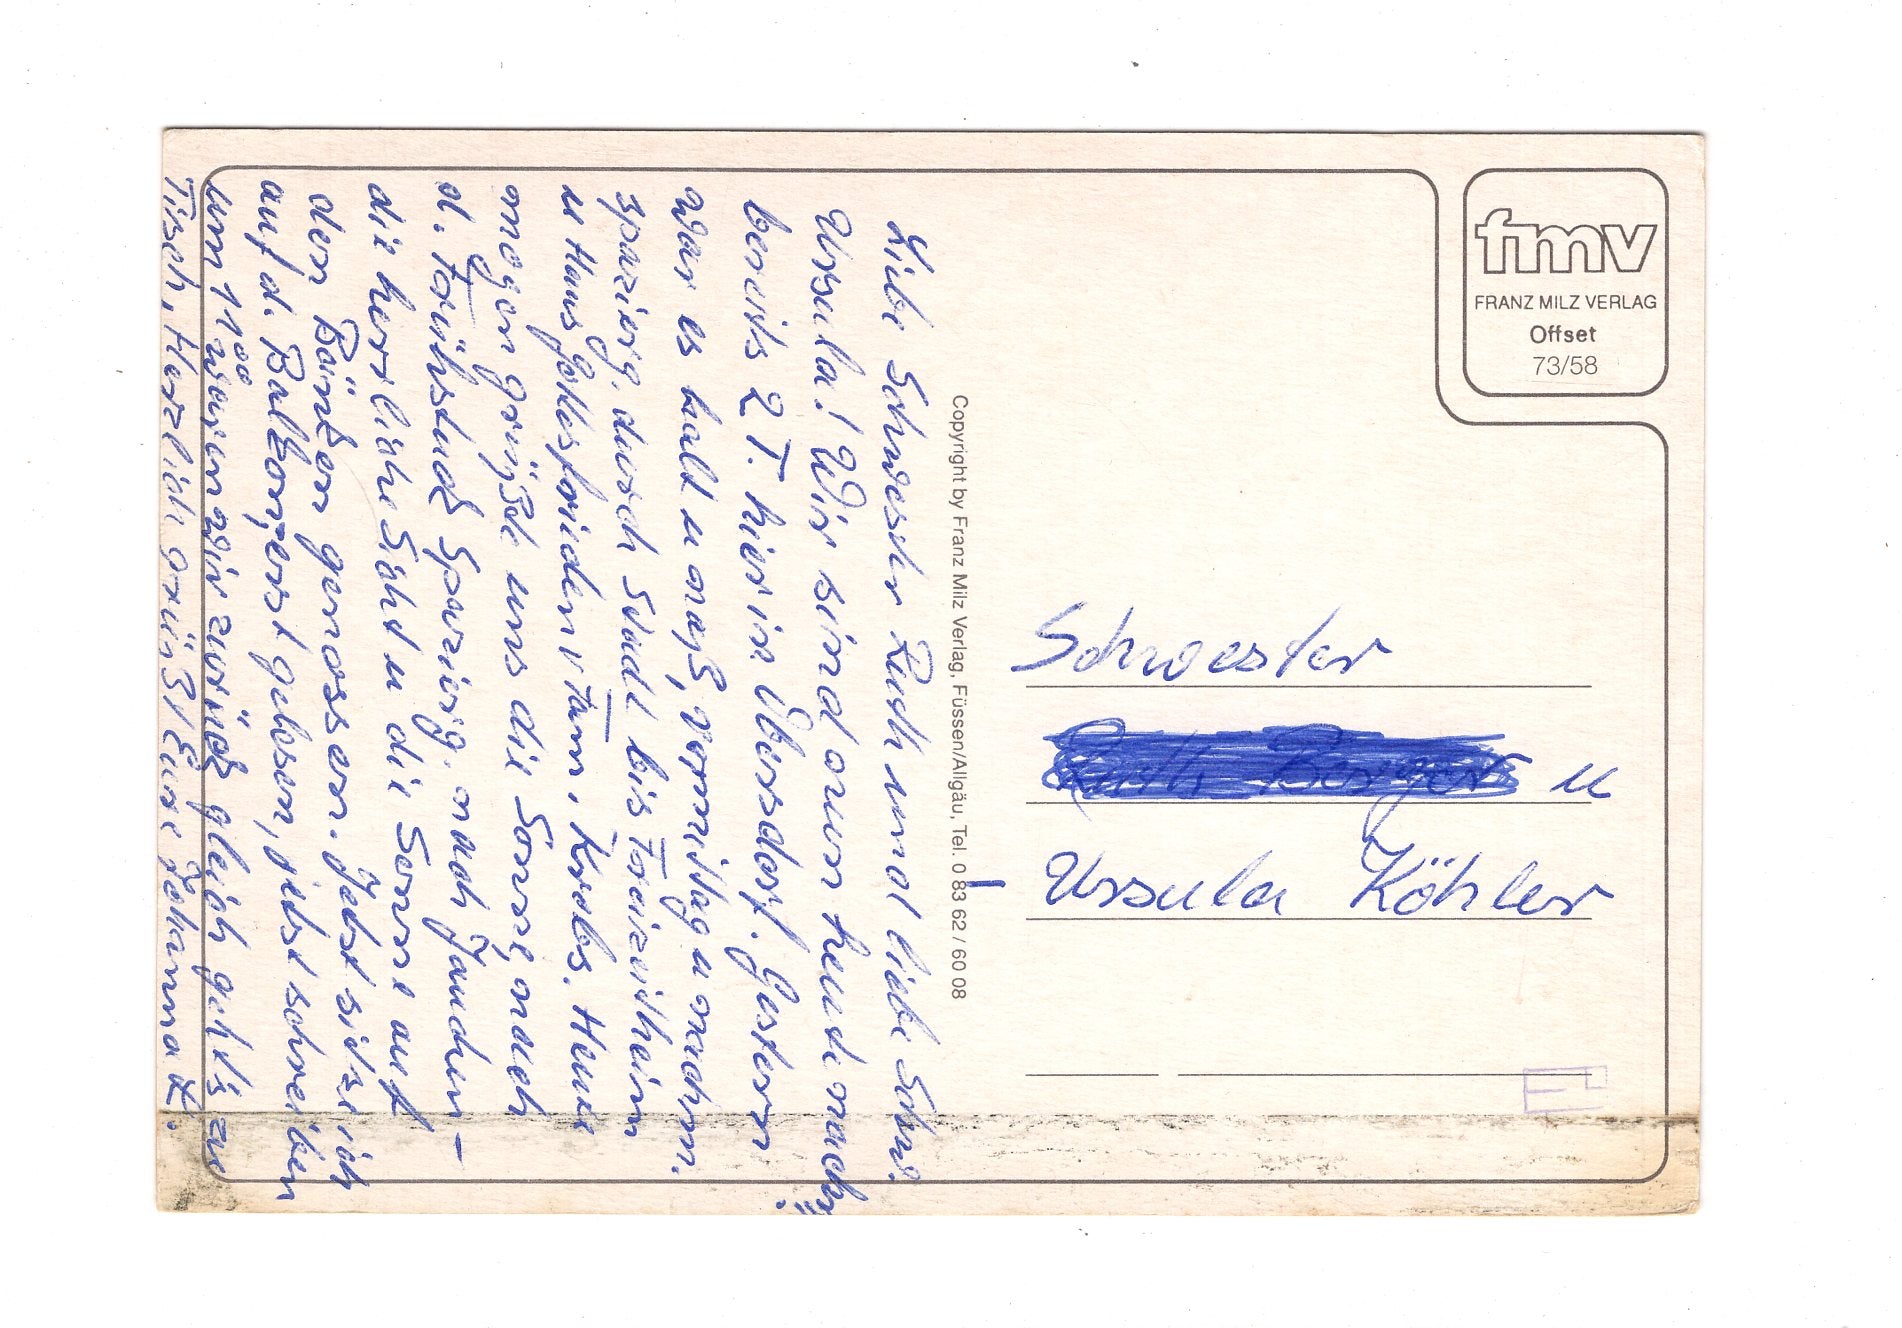 Liebe Schwester Ruth und liebe Schw.
Ursula! Wir sind nun heute nach
bereits 2 T. hier in Übersdorf. Gestern
war es kalt u naß, vormittag u nachm.
Spazierg. durch Stadt bis
u Haus Gottesfrieden v Fam. Krebs. Heute
morgen grüßte uns die Sonne, nach
d. Frühstück Spazierg. nach Jauchen-
die herrliche Sicht u die Sonne auf
den Bänken genossen. Jetzt sitze ich
auf d. Balkon, erst gelesen, jetzt schreiben
um 11°° waren wir zurück gleich geht's zu
Tisch, Herzlich grüßt Eure Johanna H.
Copyright by Franz Milz Verlag, Füssen/Allgäu, Tel. 0 83 62 / 60 08
fmv
FRANZ MILZ VERLAG
Offset
73/58
Schwester
u
Ursula Köhler